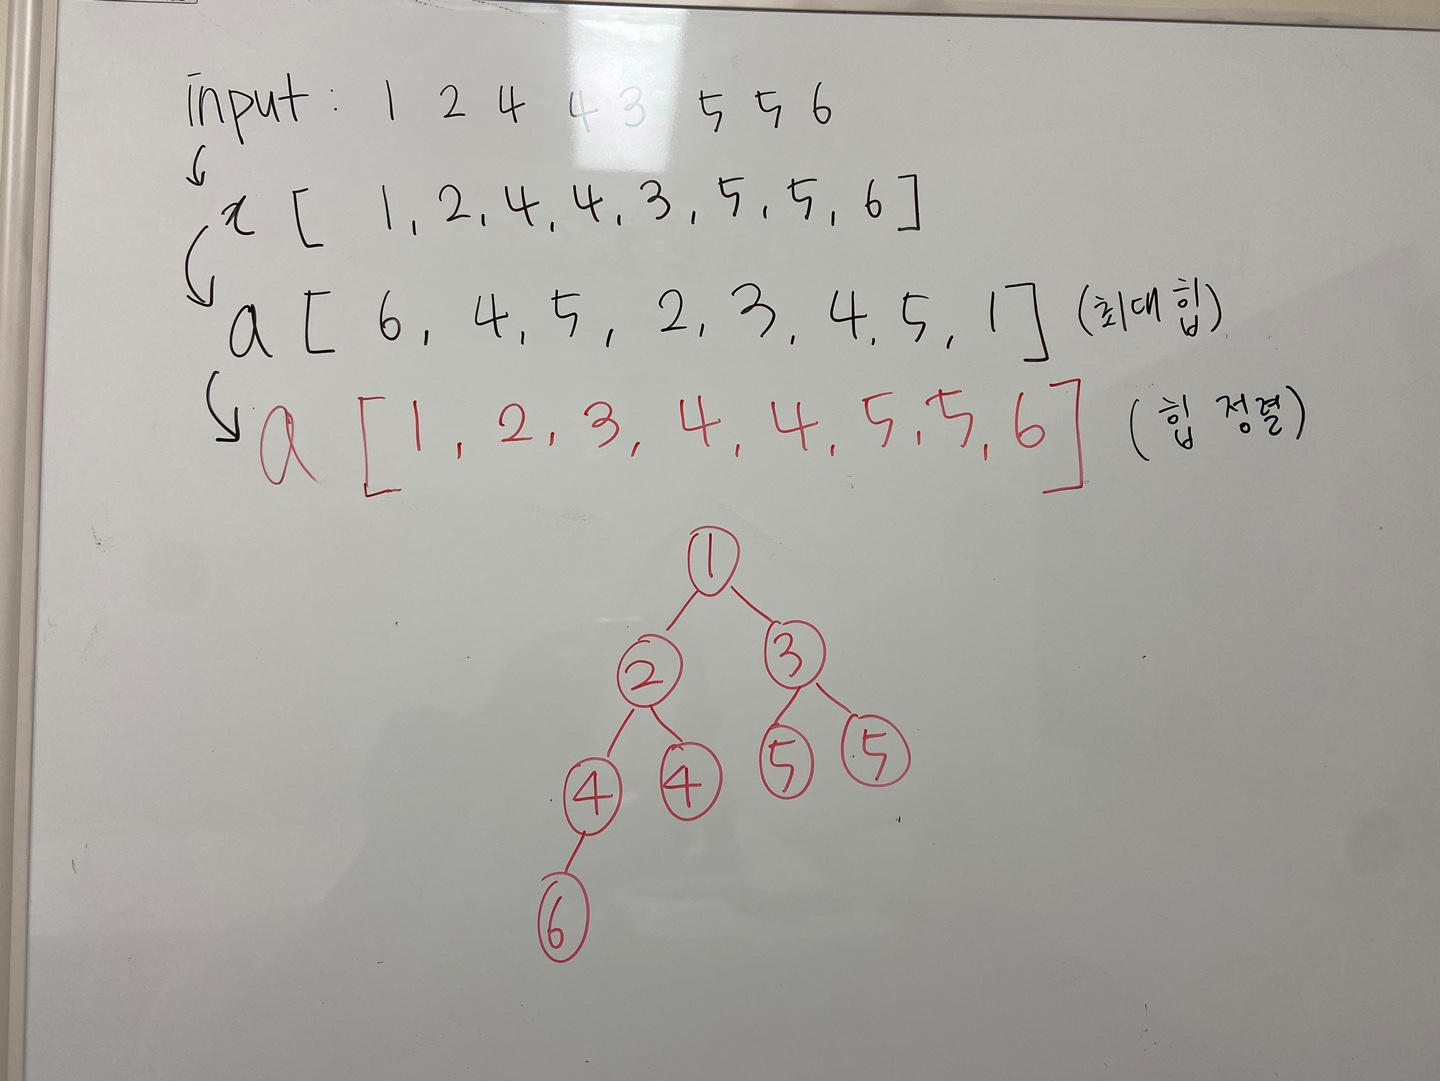 input : 1 2 4 4 3 5 5 6
x [ 1, 2, 4, 4, 3, 5, 5, 6 ]
a [ 6, 4, 5, 2, 3, 4, 5, 1 ] (최대 힙)
a [ 1, 2, 3, 4, 4, 5, 5, 6 ] (힙 정렬)
1
2 3
4 4 5 5
6